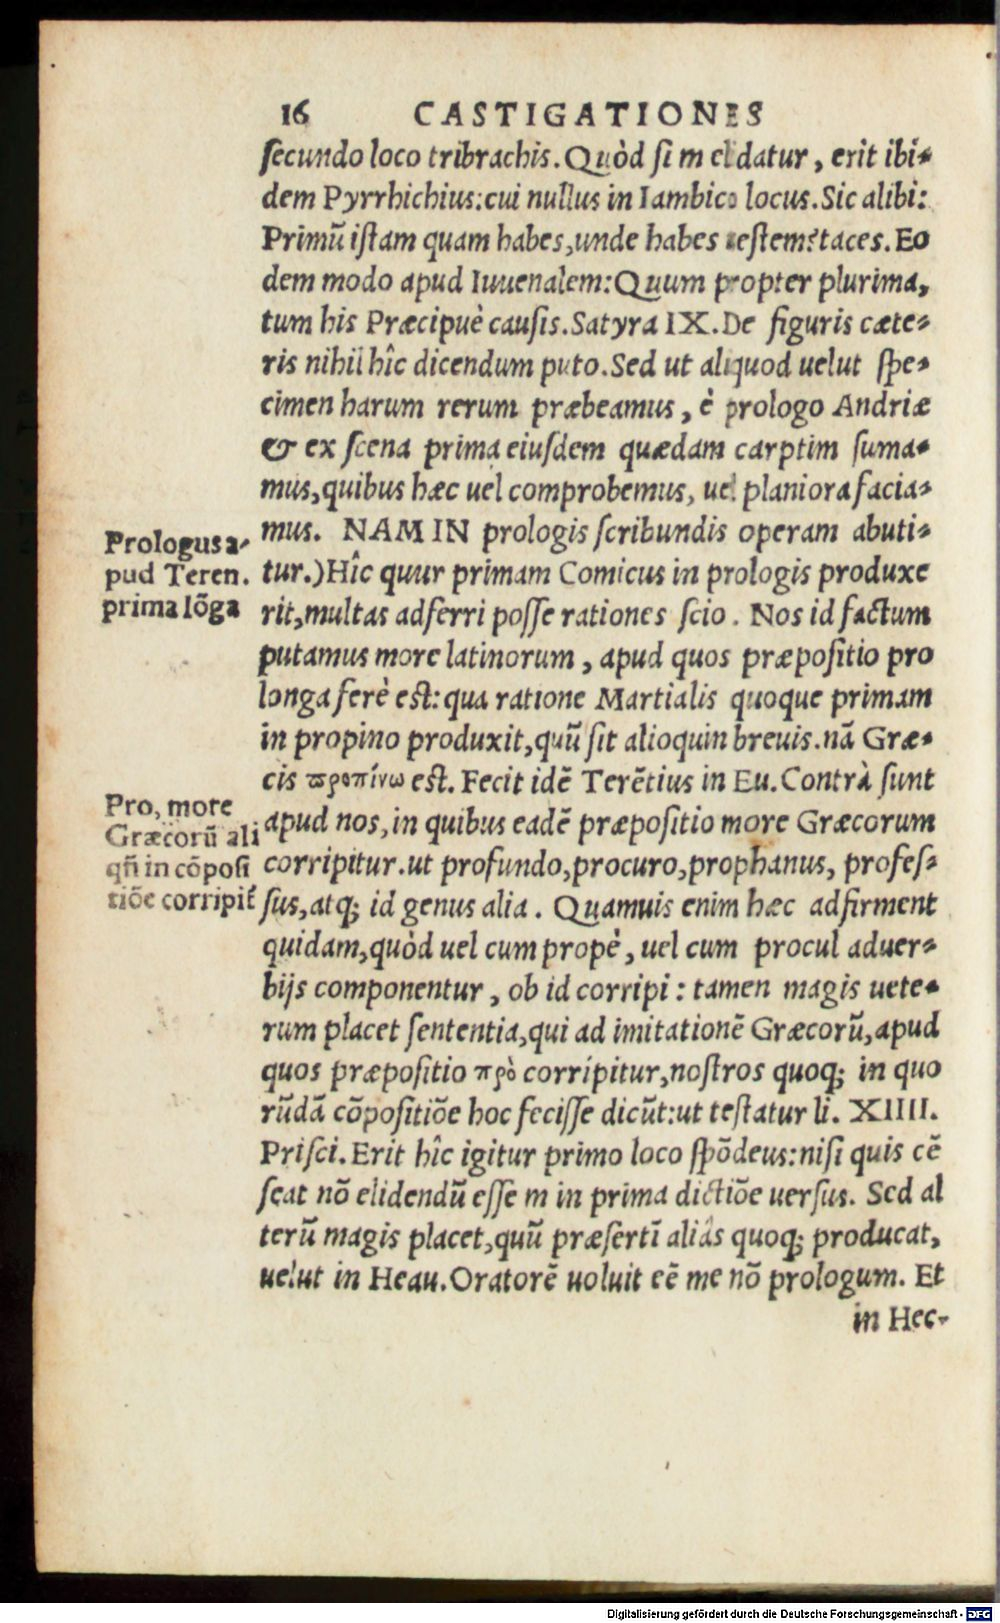 16 CASTIGATIONES
secundo loco tribrachis. Quòd si m eldatur, erit ibi-
dem Pyrrhichius: cui nullus in Iambico locus. Sic alibi:
Primũ istam quam habes, unde habes uestem? taces. Eo
dem modo apud Iuuenalem: Quum propter plurima,
tum his Præcipuè causis. Satyra IX. De figuris cæte-
ris nihil hîc dicendum puto. Sed ut aliquod uelut spe-
cimen harum rerum præbeamus, è prologo Andriæ
& ex scena prima eiusdem quædam carptim suma-
mus, quibus hæc uel comprobemus, uel planiora facia-
mus. NAM IN prologis scribundis operam abuti-
tur.) Hîc quur primam Comicus in prologis produxe
rit, multas adferri posse rationes scio. Nos id factum
putamus more latinorum, apud quos præpositio pro
longa ferè est: qua ratione Martialis quoque primam
in propino produxit, quũ sit alioquin breuis. nã Græ-
cis προπίνω est. Fecit idẽ Terẽtius in Eu. Contrà sunt
apud nos, in quibus eadẽ præpositio more Græcorum
corripitur. ut profundo, procuro, prophanus, profes-
sus, atq; id genus alia. Quamuis enim hæc adfirment
quidam, quòd uel cum propè, uel cum procul aduer-
bijs componentur, ob id corripi: tamen magis uete-
rum placet sententia, qui ad imitationẽ Græcorũ, apud
quos præpositio πρὸ corripitur, nostros quoq; in quo
rũdã cõpositiõe hoc fecisse dicũt: ut testatur li. XIIII.
Prisci. Erit hîc igitur primo loco spõdeus: nisi quis cẽ
seat nõ elidendũ esse m in prima dictiõe uersus. Sed al
terũ magis placet, quũ præsertĩ aliàs quoq; producat,
uelut in Heau. Oratorẽ uoluit eẽ me nõ prologum. Et
in Hec-
Prologus a-
pud Teren.
prima lõga
Pro, more
Græcorũ ali
qñ in cõposi
tiõe corripit̃
Digitalisierung gefördert durch die Deutsche Forschungsgemeinschaft - DFG